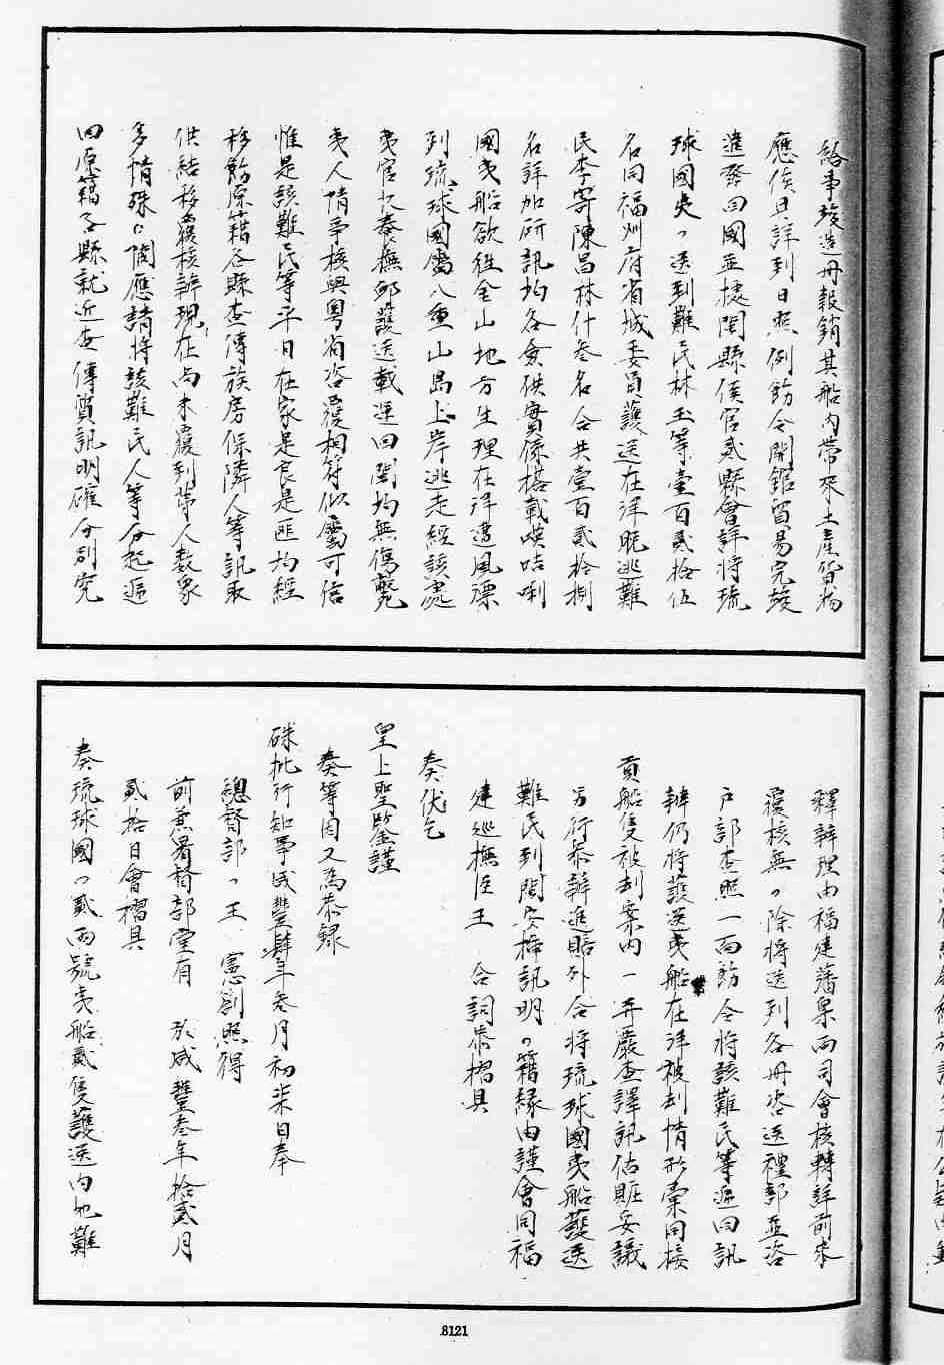 給事竣造冊報銷其船內帶來土產貨物
應俟具詳到日照例飭令開館貿易完竣
遣發回國並據閩縣侯官貳縣會詳將琉
球國夷ミ送到難民林玉等壹百貳拾伍
名同福州府省城委員護送在洋脫逃難
民李寄陳昌林什叁名合共壹百貳拾捌
名詳加研訊均各僉供實係搭載嘆咭唎
國夷船欲往金山地方生理在洋遭風漂
到琉球國屬八重山島上岸逃走經該處
夷官 奏撫卹護送載運回閩均無傷斃
夷人情事核與粵省咨覆相符似屬可信
惟是該難民等平日在家是良是匪均經
移飭原籍各縣查傳族房保隣人等訊取
供結移覆核辦現在尚未覆到第人數眾
多情殊ミ閩應請將該難民人等分起遞
回原籍各縣就近查傳質訊明確分別究
釋辦理由福建藩臬兩司會核轉詳前來
覆核無ミ除將送到各冊咨送禮部並咨
戶部查照一面飭令將該難民等遞回訊
辦仍將護送夷船在洋被刦情形彙同接
貢船隻被刦案內一并嚴查譯訊估賍妥議
另行恭辦進貼外合將琉球國夷船護送
難民到閩安揷訊明ミ籍緣由謹會同福
建巡撫臣王 合詞恭摺具
奏伏乞
皇上聖鑒謹
奏等因又為恭錄
硃批行知事咸豐肆年叁月初柒日奉
總督部ミ王 憲劄照得
前兼署督部堂有 於咸豐叁年拾貳月
貳拾日會摺具
奏琉球國ミ貳兩號夷船貳隻護送內地難
8121